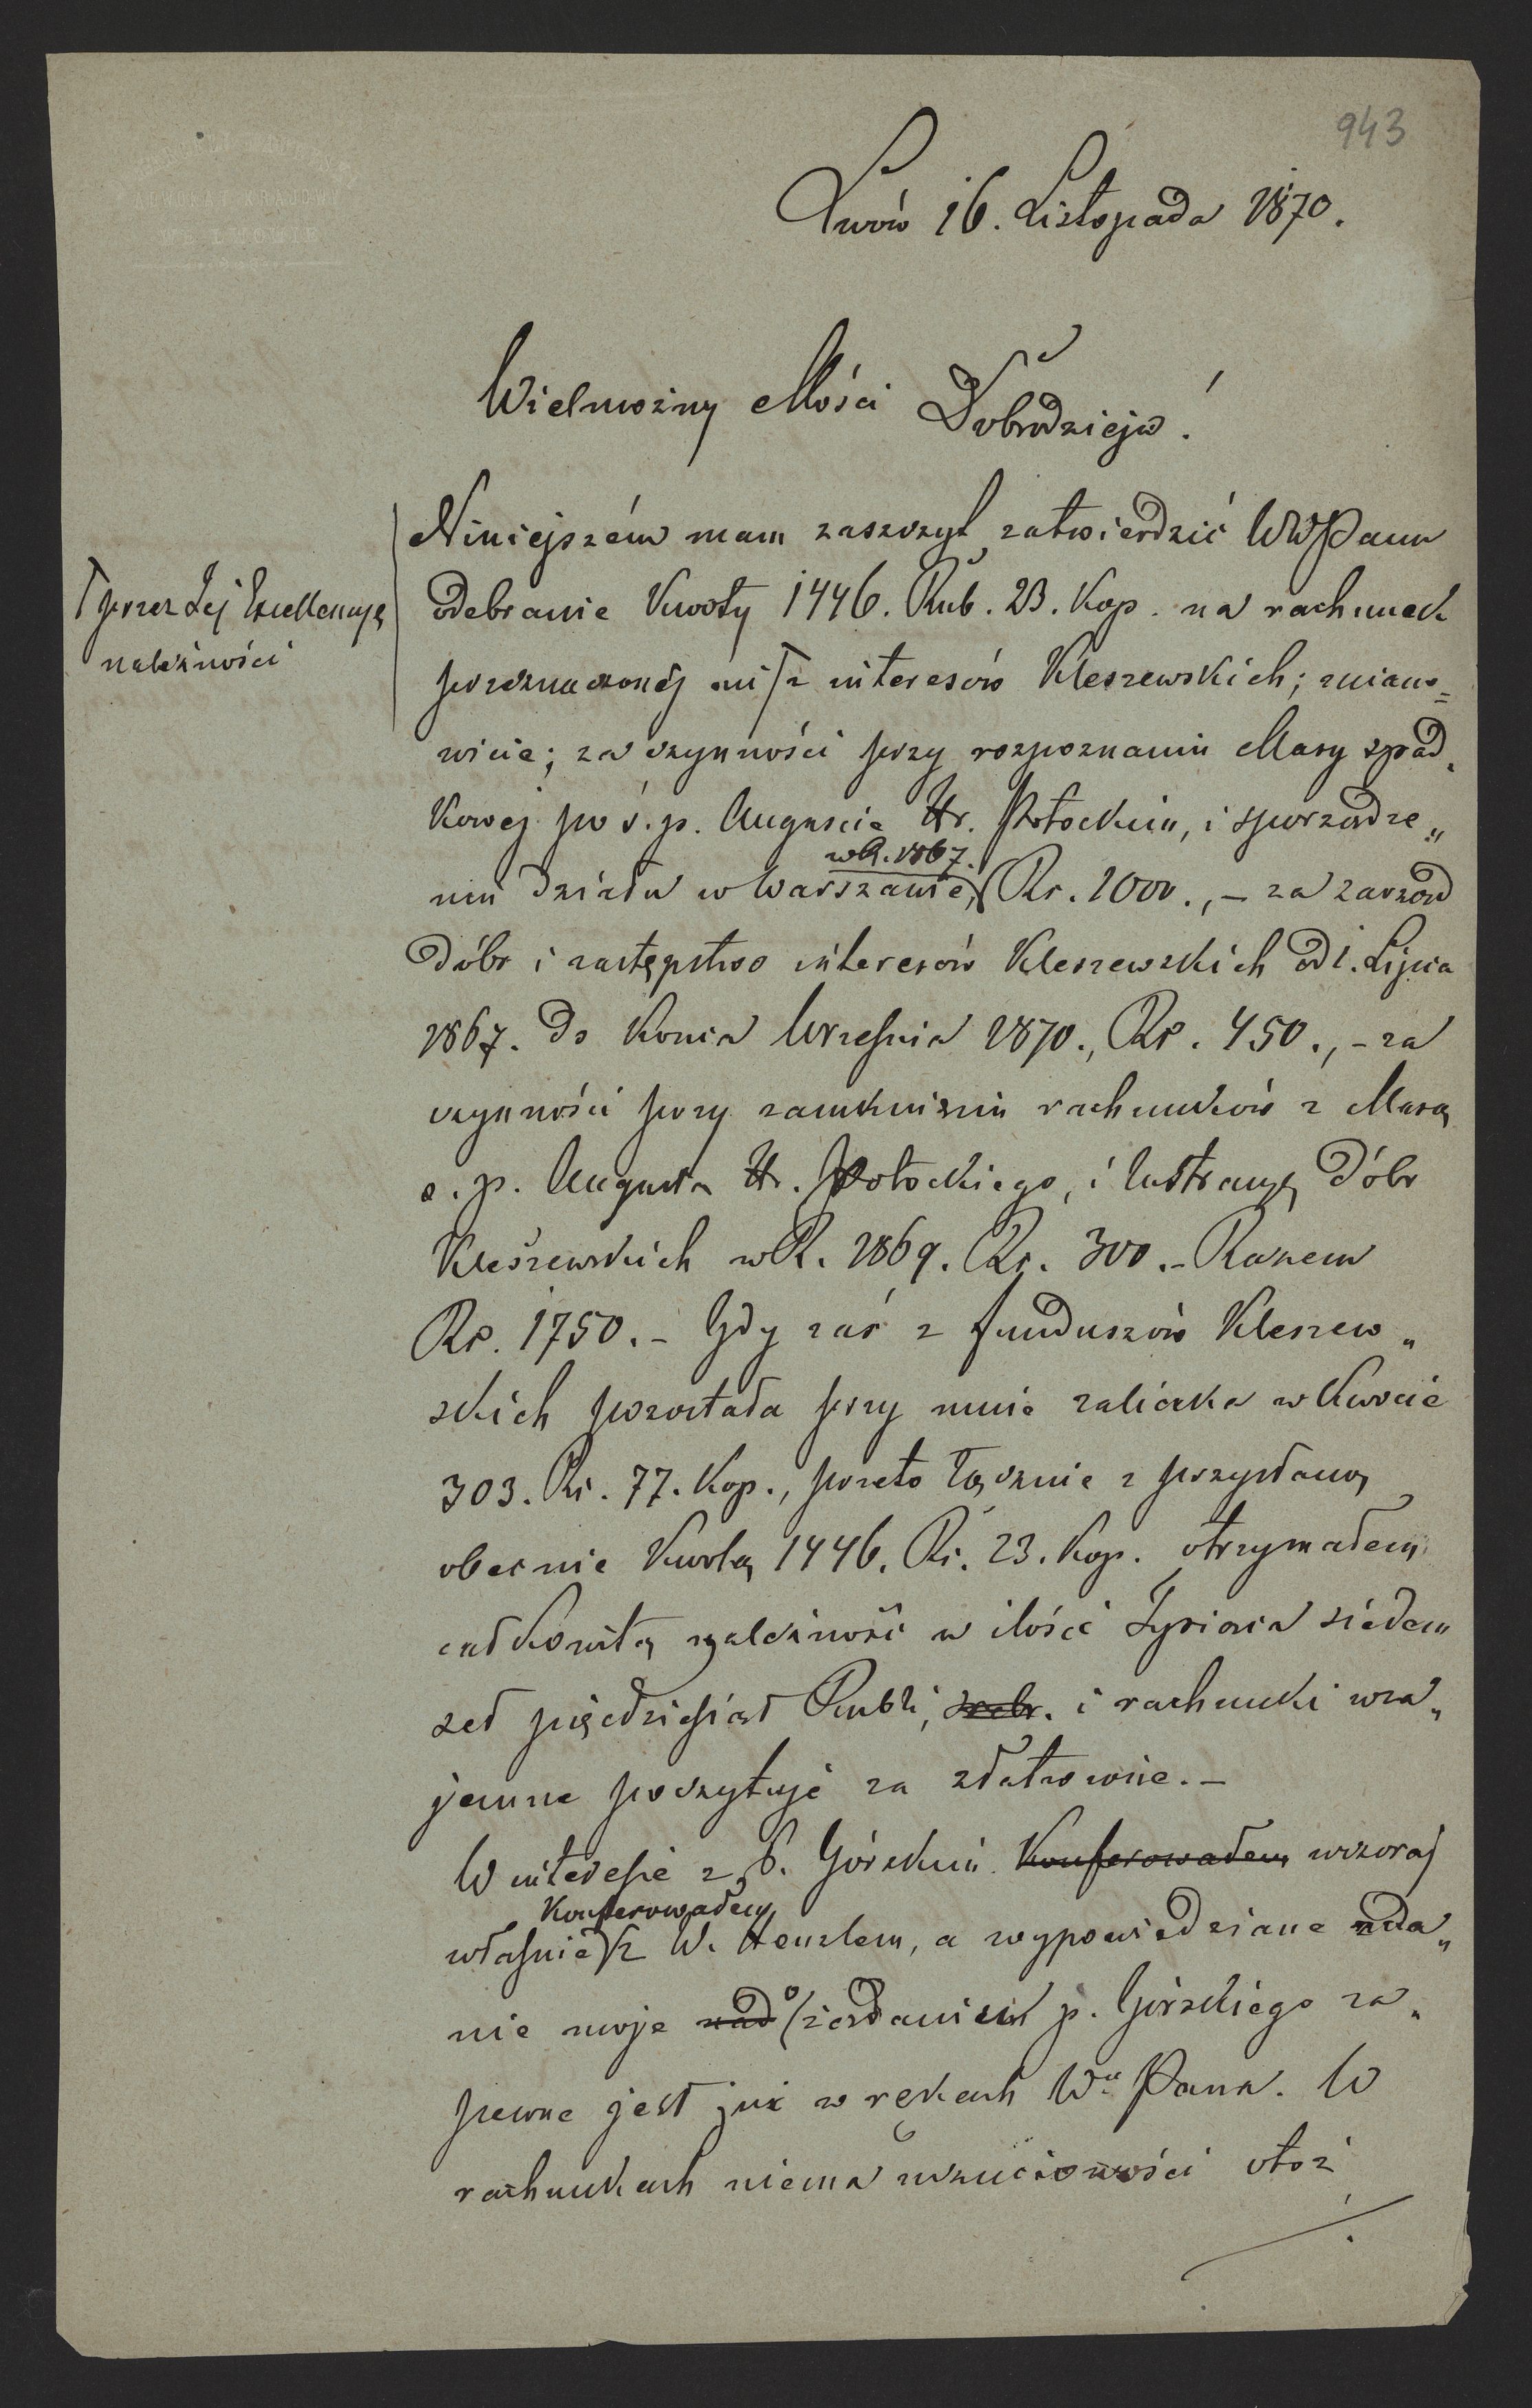 943
Lwów 16. Listopada 1870.
Wielmożny Mości Dobrodzieju!
Niniejszém mam zaszczyt zatwierdzić WWPanu
odebranie Kwoty 1446. Rub. 23. Kop. na rachunek
przeznaczonéj mi z interesów Kleszewskich; miano=
wicie; za czynności przy rozpoznaniu Masy spad„
kowej po ś. p. Auguście Hr. Potockim, i sporządze„
niu działu w Warszawie, w R. 1867. Rs. 1000., – za zarząd
dóbr i zastępstwo interesów Kleszewskich od 1. Lipca
1867. do Końca Września 1870., Rs. 450., – za
czynności przy zamknięciu rachunków z Masą
ś. p. Augusta Hr. Potockiego, i lustracyę dóbr
Kleszewskich w R. 1869. Rs. 300. – Razem
Rs. 1750. – Gdy zaś z funduszów Kleszew„
skich pozostała przy mnie zaliczka w Kwocie
303. Rs. 77. Kop., przeto łącznie z przysłaną
obecnie Kwotą 1446. Rs. 23. Kop. otrzymałem
całkowitą należność w ilości Tysiąca siedem
set pięćdziesiąt Rubli, srebr. i rachunki wza„
jemne poczytuję za załatwione. –
W interesie z P. Górskim Konferowałem wczoraj
właśnie Konferowałem z W. Henzlem, a wypowiedziane zda„
nie moje nad o żądaniem p. Górskiego za„
pewne jest już w rękach Wgo Pana. W
rachunkach niema otóż
./.
przez Jej Excellencyę
należności